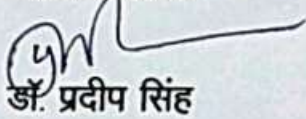 डॉ. प्रदीप सिंह